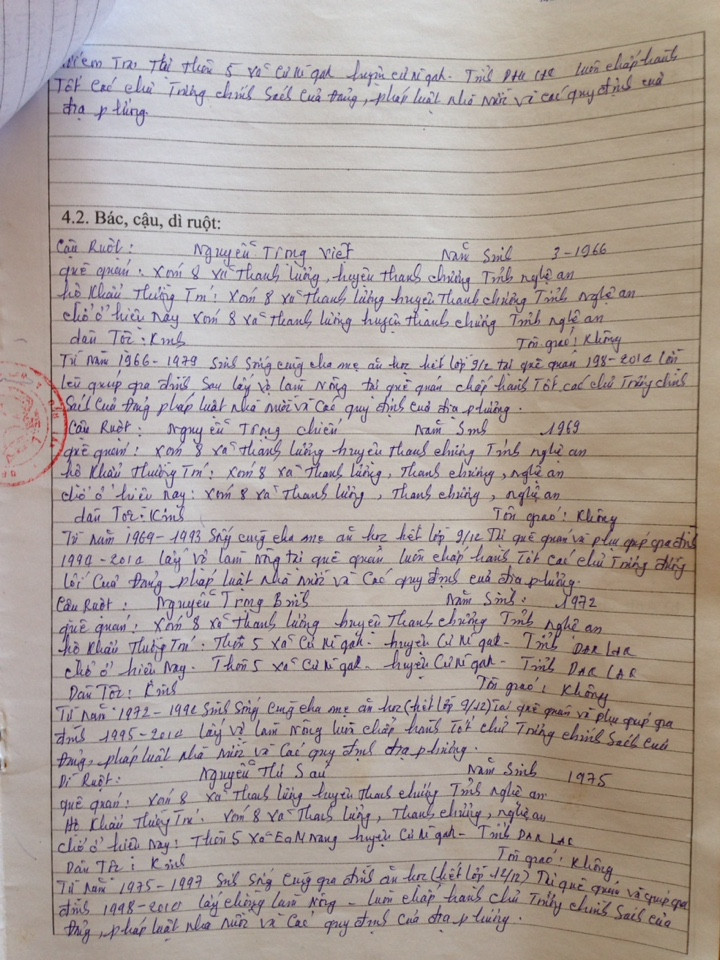 Kiểm Tra: Tại Thôn 5 xã Cư Ni gak huyện cư Ni gak - Tỉnh DAK LAK luôn chấp hành
Tốt các chủ Trương chính sách của Đảng, pháp luật nhà nước và các quy định của
địa phương.
4.2. Bác, cậu, dì ruột:
Cậu Ruột: Nguyễn Trọng Việt Năm Sinh 3-1966
quê quán: xóm 8 xã Thanh lương, huyện thanh chương Tỉnh nghệ an
hộ Khẩu Thường Trú: xóm 8 xã Thanh lương huyện Thanh chương Tỉnh Nghệ an
chỗ ở hiện nay xóm 8 xã Thanh lương huyện thanh chương Tỉnh nghệ an
dân Tộc: Kinh Tôn giáo: Không
Từ Năm 1966-1979 Sinh Sống cùng cha mẹ ăn học hết lớp 9/12 tại quê quán 198-2014 lớn
lên giúp gia đình Sau lấy vợ làm nông tại quê quán chấp hành Tốt các chủ Trương chính
Sách của Đảng pháp luật nhà nước và Các quy định của địa phương.
Cậu Ruột: Nguyễn Trọng chiến Năm Sinh 1969
quê quán: xóm 8 xã thanh lương huyện Thanh chương Tỉnh nghệ an
hộ Khẩu Thường Trú: xóm 8 xã Thanh lương, Thanh chương, nghệ an
chỗ ở hiện nay: xóm 8 xã Thanh lương, Thanh chương, nghệ an
dân Tộc: Kinh Tôn giáo: Không
Từ Năm 1969-1993 Sống cùng cha mẹ ăn học hết lớp 9/12 Tại quê quán và phụ giúp gia đình
1994-2014 lấy vợ làm nông tại quê quán luôn chấp hành Tốt các chủ Trương đường
lối Của Đảng, pháp luật nhà nước và Các quy định của địa phương.
Cậu Ruột: Nguyễn Trọng Bình Năm Sinh: 1972
quê quán: xóm 8 xã Thanh lương huyện Thanh chương Tỉnh nghệ an
hộ Khẩu Thường Trú: Thôn 5 xã Cư Ni gak - huyện Cư Ni gak - Tỉnh DAK LAK
chỗ ở hiện nay - Thôn 5 xã Cư Ni gak - huyện Cư Ni gak - Tỉnh DAK LAK
Dân Tộc: Kinh Tôn giáo: Không
Từ Năm 1972-1994 Sinh Sống Cùng cha mẹ ăn học (hết lớp 9/12) Tại quê quán và phụ giúp gia
đình 1995-2014 lấy vợ làm Nông luôn chấp hành Tốt chủ Trương chính Sách của
Đảng, pháp luật nhà nước và Các quy định địa phương.
Dì Ruột: Nguyễn Thị Sau Năm Sinh 1975
quê quán: xóm 8 xã Thanh lương huyện thanh chương Tỉnh nghệ an
Hộ Khẩu Thường Trú: xóm 8 xã Thanh lương, Thanh chương, nghệ an
chỗ ở hiện nay: Thôn 5 xã EaM Nang huyện Cư Ni gak - Tỉnh DAK LAK
Dân Tộc: Kinh Tôn giáo: Không
Từ Năm 1975-1997 Sinh Sống Cùng gia đình ăn học (hết lớp 12/12) Tại quê quán và giúp gia
đình 1998-2014 lấy chồng làm Nông - luôn chấp hành chủ Trương chính Sách của
Đảng, pháp luật nhà nước và Các quy định của địa phương.